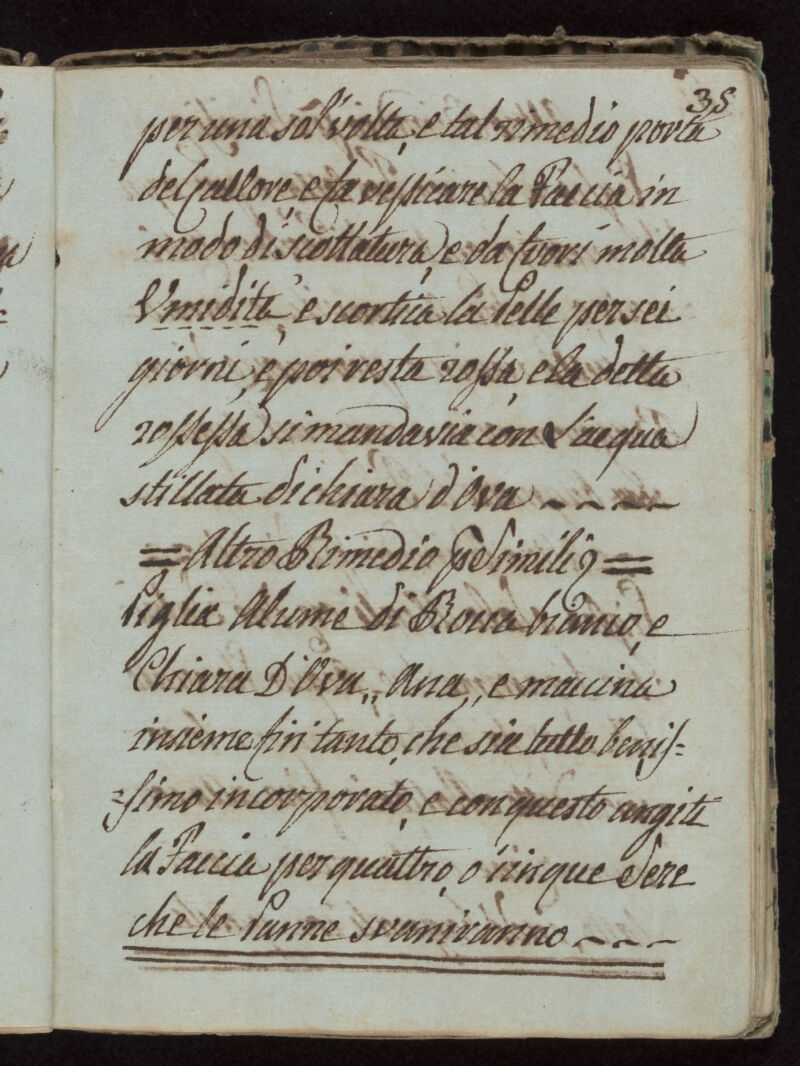 35
per una sol volta, e tal rimedio porta
del Callore, e fa vessicare la Faccia in
modo di scottatura, e da fuori molta
Umidità, e scortica la Pelle per sei
giorni, e poi resta rossa, e la detta
rossessa si manda via con L'acqua
stillata di chiara d'Ova ~ ~ ~ ~
= Altro Rimedio p Simili =
Piglia Alume di Rocca bruscio, e
Chiara D'Ova,, Ana,, e maccina
insieme fin tanto, che sia tutto benis=
=simo incorporato, e con questo ungiti
la Faccia per quattro, o cinque Sere
che le Panne svaniranno ~ ~ ~